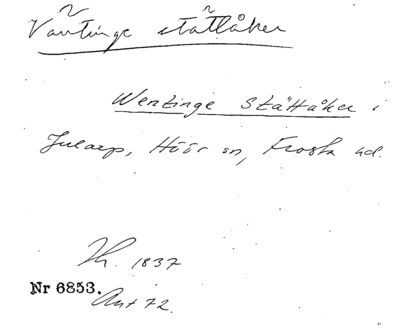 Väntinge ståtlåker
Wentinge Stättåker i
Jularp, Höör sn, Frosta hd.
Th. 1837
Nr 6853.
Avt 72.